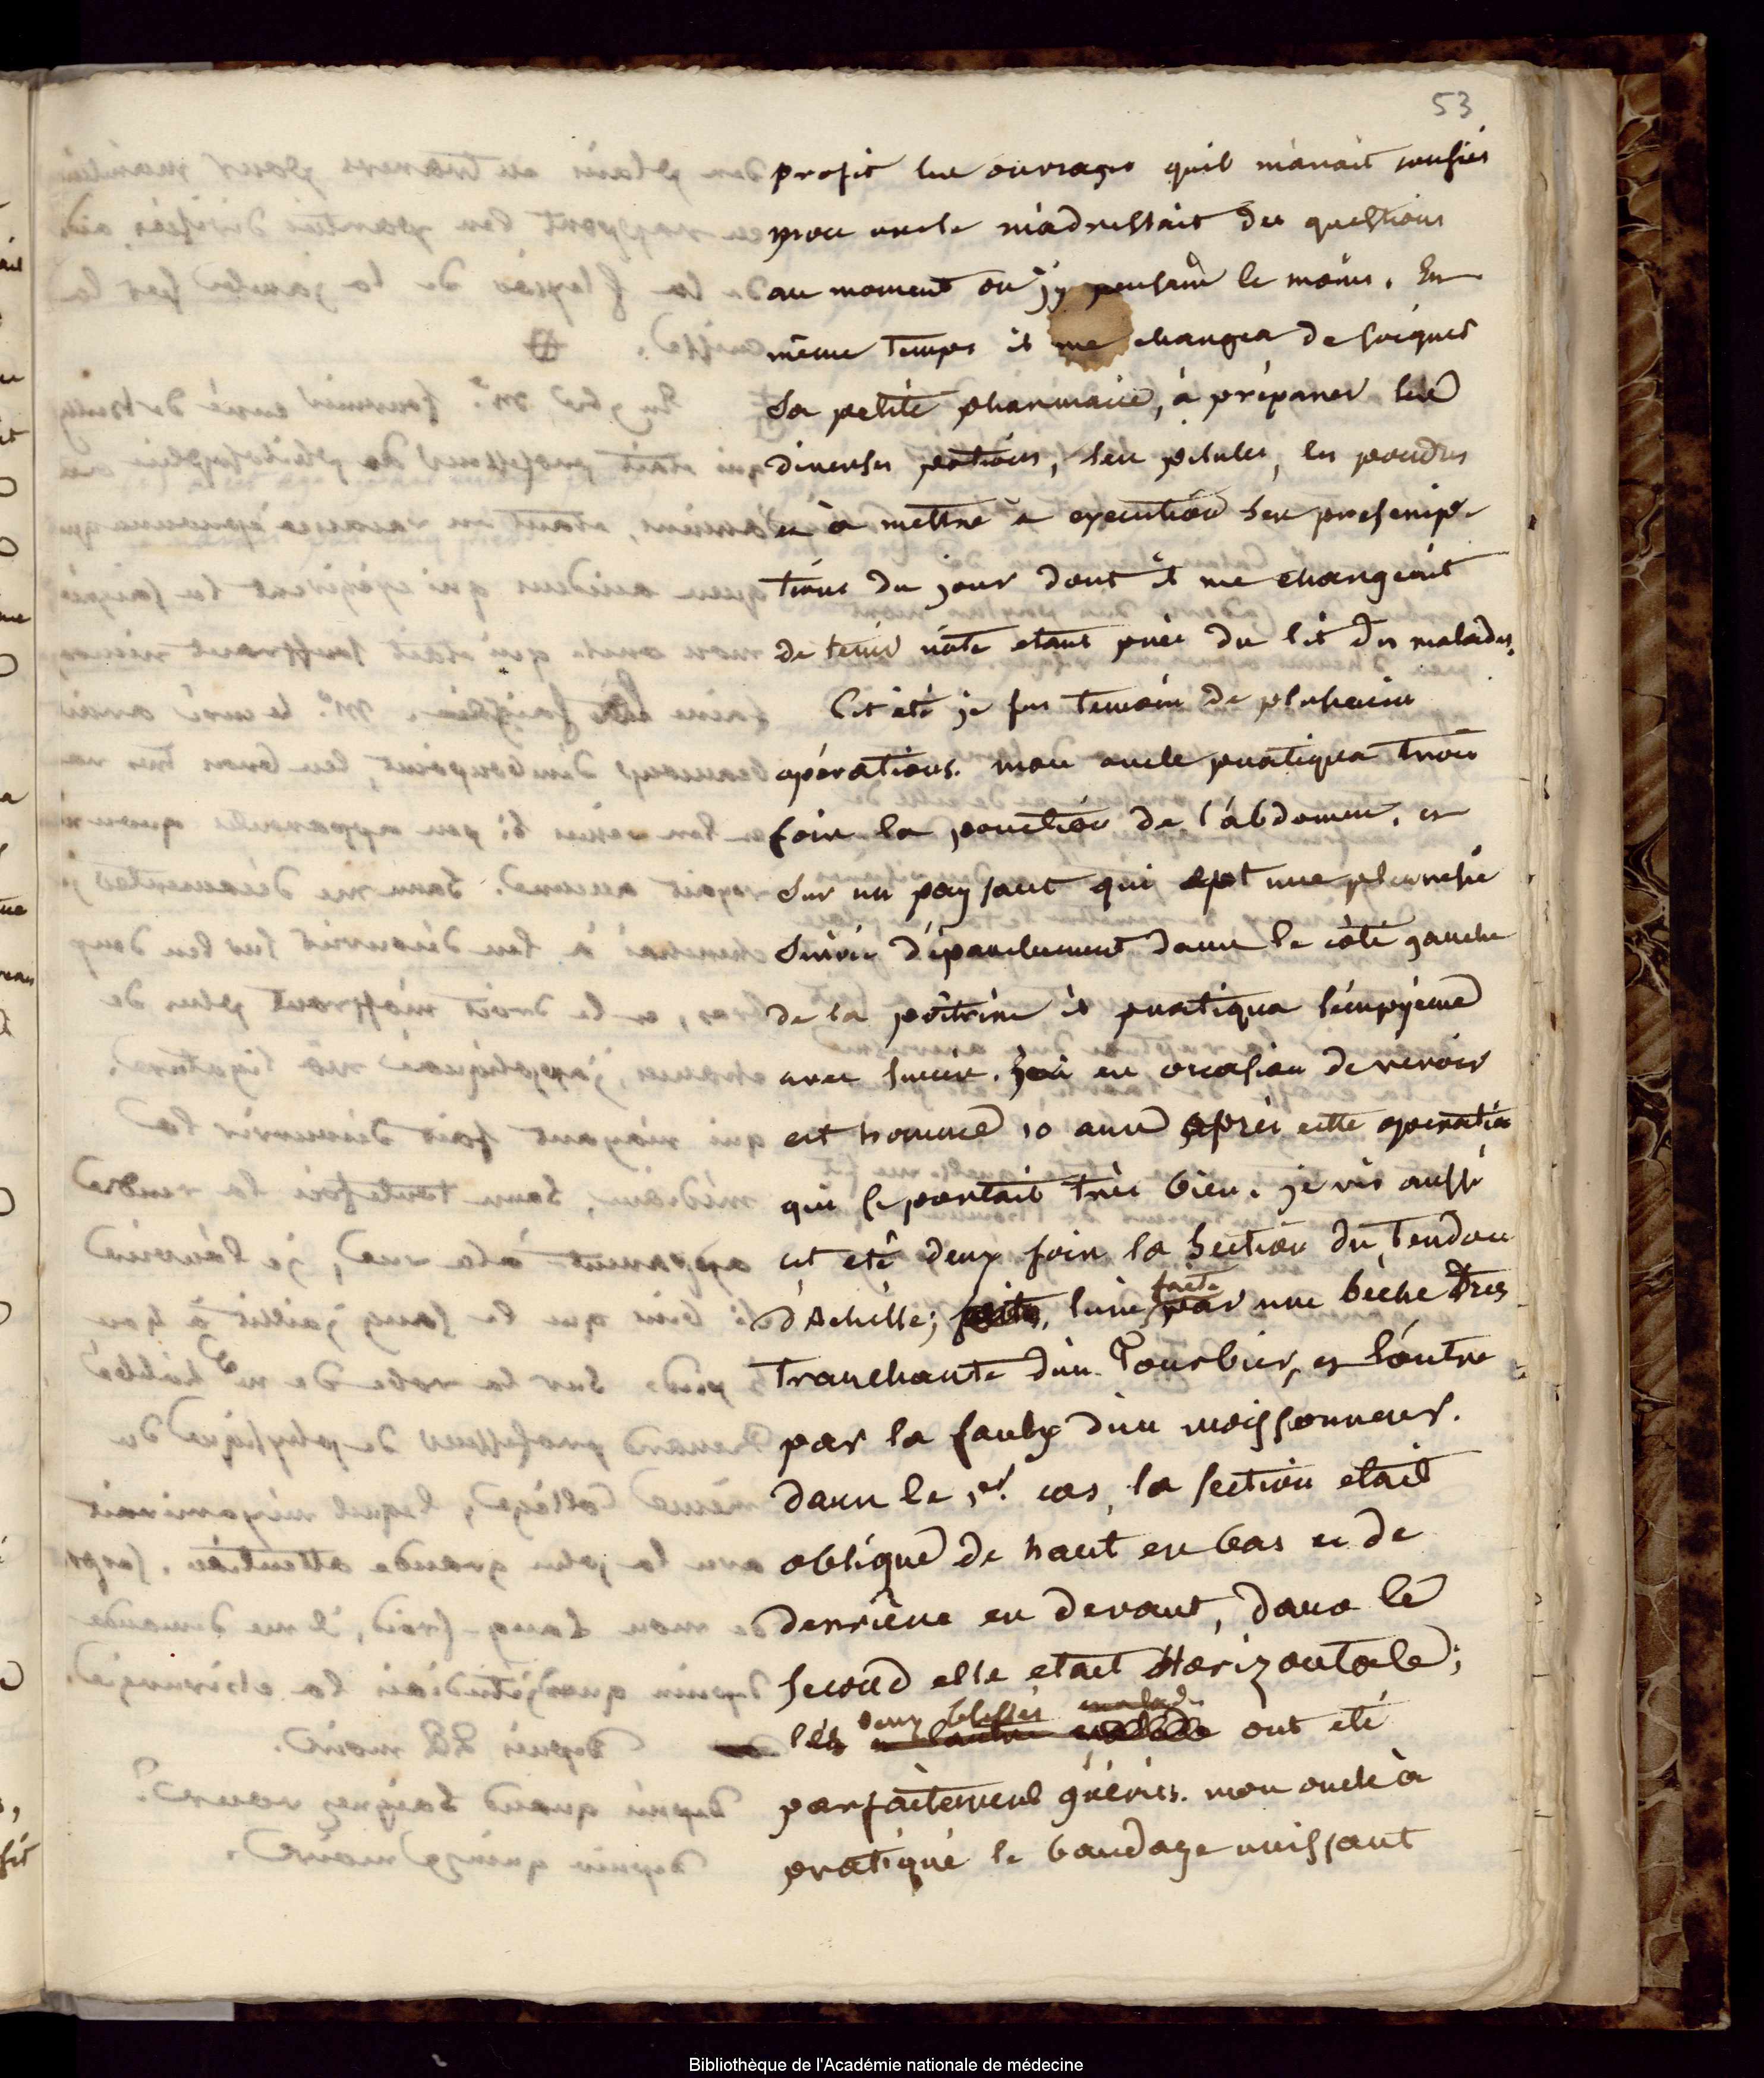 53
profit les ouvrages quil m'avait confiés
mon oncle m'adressait des questions
au moment ou j'y pensais le moins. En
même temps il me chargea de soigner
sa petite pharmacie, à préparer les
diverses potions, ses pilules, les poudres
et à mettre a execution ses prescrip-
tions du jour dont il me chargeait
de tenir note etant près du lit des malades.
Cet été je fus temoin de plusieurs
opérations. mon oncle pratiqua trois
fois la ponction de l'abdomen, et
sur un paysant qui eut une pleuresie
suivie d'épanchement dans le côté gauche
de la poitrine il pratiqua l'empyème
avec succes. j'ai eu occasion de revoir
cet homme 10 ans après cette operation
qui se portait très bien. je vis aussi
cet eté deux fois la section du Tendon
d'Achille; l'une faite par une bèche tres
tranchante d'un Tourbier, et l'autre
par la faulx d'un moissonneur.
dans le 1er. cas, la section etait
oblique de haut en bas et de
derrière en devant, dans le
second elle etait Horizontale;
les deux blessés ont eté
parfaitement guéris. mon oncle a
pratiqué le bandage unissant
Bibliothèque de l'Académie nationale de médecine